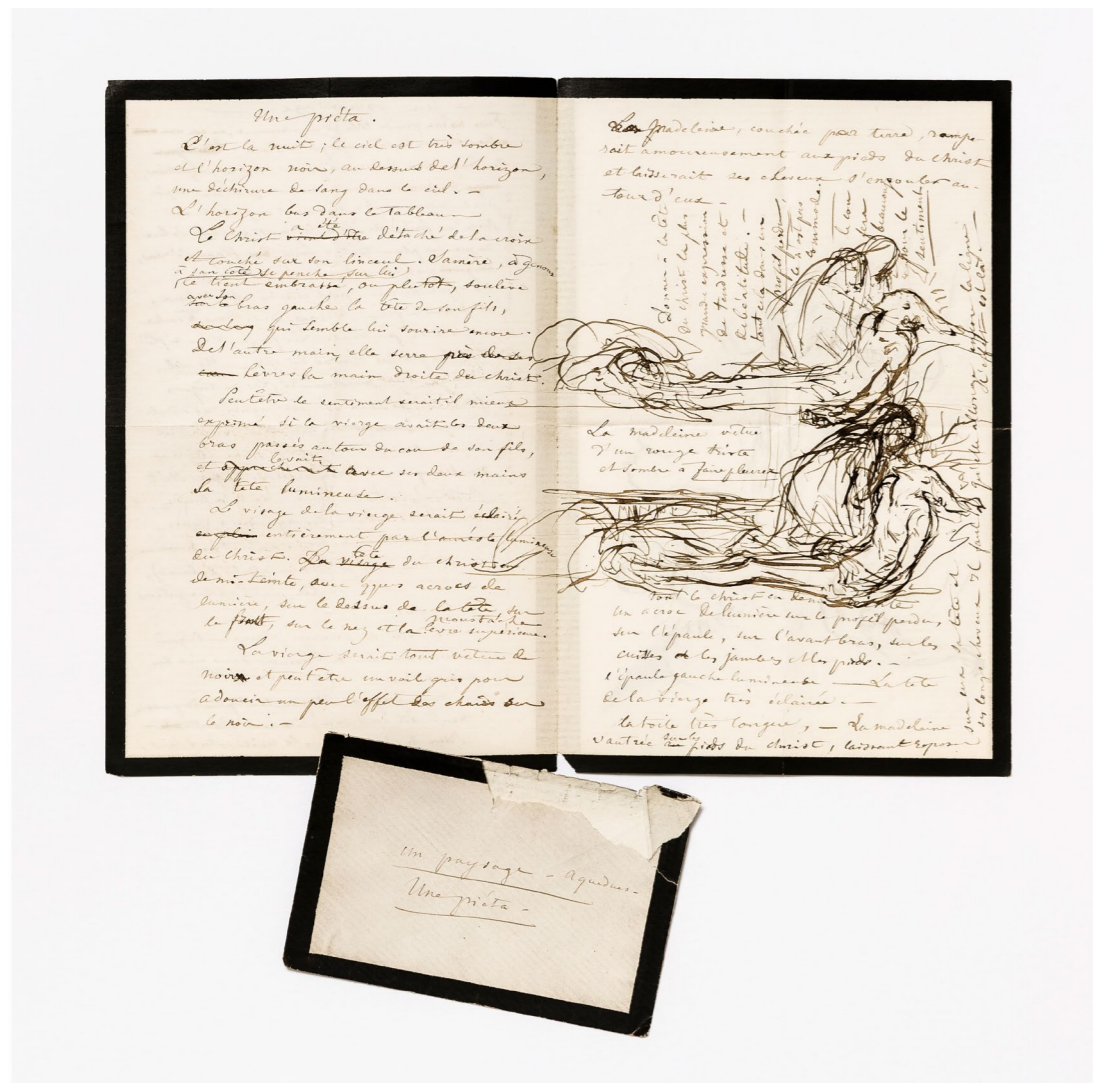 Une piéta.
C'est la nuit ; le ciel est très sombre
et l'horizon noir, au dessus de l'horizon,
une déchirure de sang dans le ciel. —
L'horizon bas dans le tableau —
Le Christ a été détaché de la croix
et couché sur son linceul. Sa mère, à genoux
à son côté se penche sur lui
le tient embrassé, ou plutôt, soulève
avec son bras gauche la tête de son fils,
qui semble lui sourire encore.
De l'autre main, elle serre près de ses
lèvres la main droite du christ.
Peut être le sentiment serait il mieux
exprimé si la vierge avait les deux
bras passés autour du cou de son fils,
et levait avec ses deux mains
sa tête lumineuse.
Le visage de la vierge serait éclairé
entièrement par l'auréole lumineuse
du Christ. La tête du christ
demi-teinte, avec qques accrocs de
lumière, sur le dessus de la tête, sur
le front, sur le nez et la moustache
lèvre supérieure.
La vierge serait tout vêtue de
noir et peut être un voile gris pour
adoucir un peu l'effet des chairs sur
le noir. —
La Madeleine, couchée par terre, rampe-
rait amoureusement aux pieds du Christ
et laisserait ses cheveux s'enrouler au-
tour d'eux —
Donner à la tête
du christ la plus
grande expression
de tendresse et
de béatitude. —
tout cela dans un
profil perdu,
ce n'est pas
commode
beaucoup
pour le
sentiment
La madeleine vêtue
d'un rouge triste
et sombre à faire pleurer
tout le christ en demi teinte
un acroc de lumière sur le profil perdu,
sur l'épaule, sur l'avant bras, sur les
cuisses et les jambes et les pieds. —
l'épaule gauche lumineuse — La tête
de la vierge très éclairée. —
la toile très longue, — La madeleine
vautrée sur les pieds du christ, laissant reposer
sur eux sa tête et
ses longs cheveux
un paysage — aqueduc —
Une piéta —